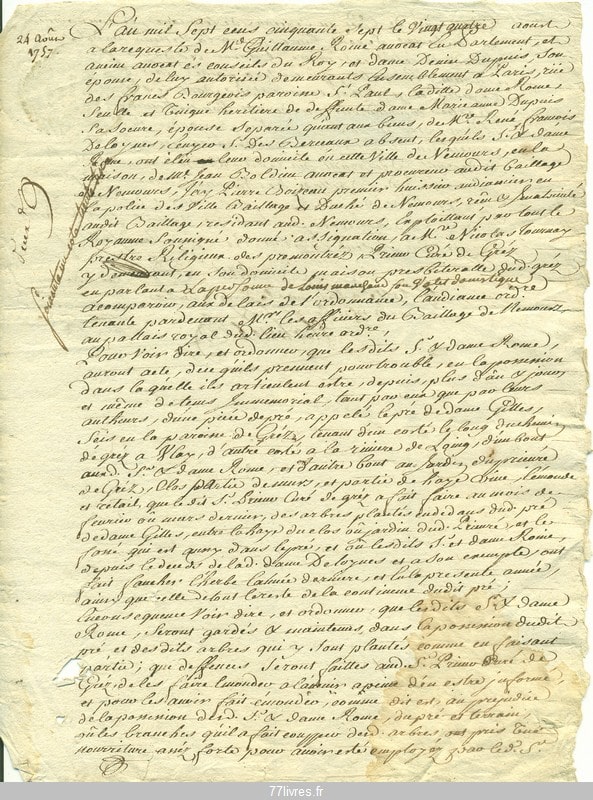 24 Août
1757
L'an mil Sept cens cinquante Sept le Vingt quatre aoust
a la requeste de Me Guillaume Rome avocat En Parlement, et
ancien avocat es conseils du Roy, et dame Denise Dupuis, Son
épouse, de luy autorisée demeurants Ensemblement a Paris, rüe
des francs Bourgeois paroisse St Paul, Laditte dame Rome,
Seulle et Unique heritiere de deffunte dame Marie anne Dupuis
Sa Soeure, épouse Separée quant aux biens, de Me René francois
Deloynes, Ecuyer Sr des Berceaux absent, lesquels Sr et dame
Rome, ont éleu leur domicile en cette Ville de Nemours, en la
maison, de Me Jean Boldin avocat et procureur audit Baillage
de Nemours, J'ay Pierre Doizeau premier huissier audiancier en
la police des Ville Baillage et Duché de Nemours, reçu et Immatriculé
audit Baillage, residant aud. Nemours, Exploittant par tout le
Royaume Soussigné donné assignation, a Me Nicolas tournay
prestre Religieux des premontrez Prieur Curé de Gréz
y demeurant, en Son domicile maison presbiteralle dud. gréz
en parlant a la personne de
a comparoir, au delais de l'ordonnance, L'audiance ordre
tenante pardevant Mrs les officiers du Baillage de Nemours
au pallais royal dud. lieu heure ordre
Pour Voir dire, et ordonner, que lesdits Sr et dame Rome,
auront acte, de ce qu'ils prennent pour trouble, en la possession
dans laquelle ils articulent estre, depuis plus d'an et jour,
et même de tems Immemorial, tant par eux que par leurs
autheurs, d'une piéce de pré, appelé le pré de dame Gilles,
Seis en la paroisse de Gréz, tenant d'un costé le long du chemin
de gréz a Ulay, d'autre costé a la riviere de Loing, d'un bout
auxd. Sr et dame Rome, et d'autre bout au Jardin du prieuré
de Gréz, Clos partie de murs, et partie de haye Vive, l'émonde
et retait, que ledit Sr Prieur Curé de grés a fait faire au mois de
fevrier ou mars dernier, des arbres plantés en dedans dud. pré
de dame Gilles, entre la haye du clos ou jardin dud. Prieuré, et le
fossé qui est aussy dans le pré, et ou lesdits Sr et dame Rome,
depuis le deceds de lad. dame Deloynes et a son exemple, ont
fait faucher l'herbe l'année derniere, et la presente année,
ainsy que celle de tout le reste de la continence dudit pré;
En consequence Voir dire, et ordonner, que lesdits Sr et dame
Rome, Seront gardés et maintenus, dans la possession dudit
pré, et desdits arbres que y sont plantés comme en faisant
partie; que deffences Seront faittes aud. Sr Prieur Curé de
Gréz, de les faire émonder a l'avenir a peine d'en estre informé,
et pour les avoir fait émonder, comme dit est, au prejudice
de la possession desd. Sr et dame Rome, du pré et terrain
ou les branches qu'il a fait couper desd. arbres, ont pris leur
nourriture assez forte pour avoir esté employez par led. Sr